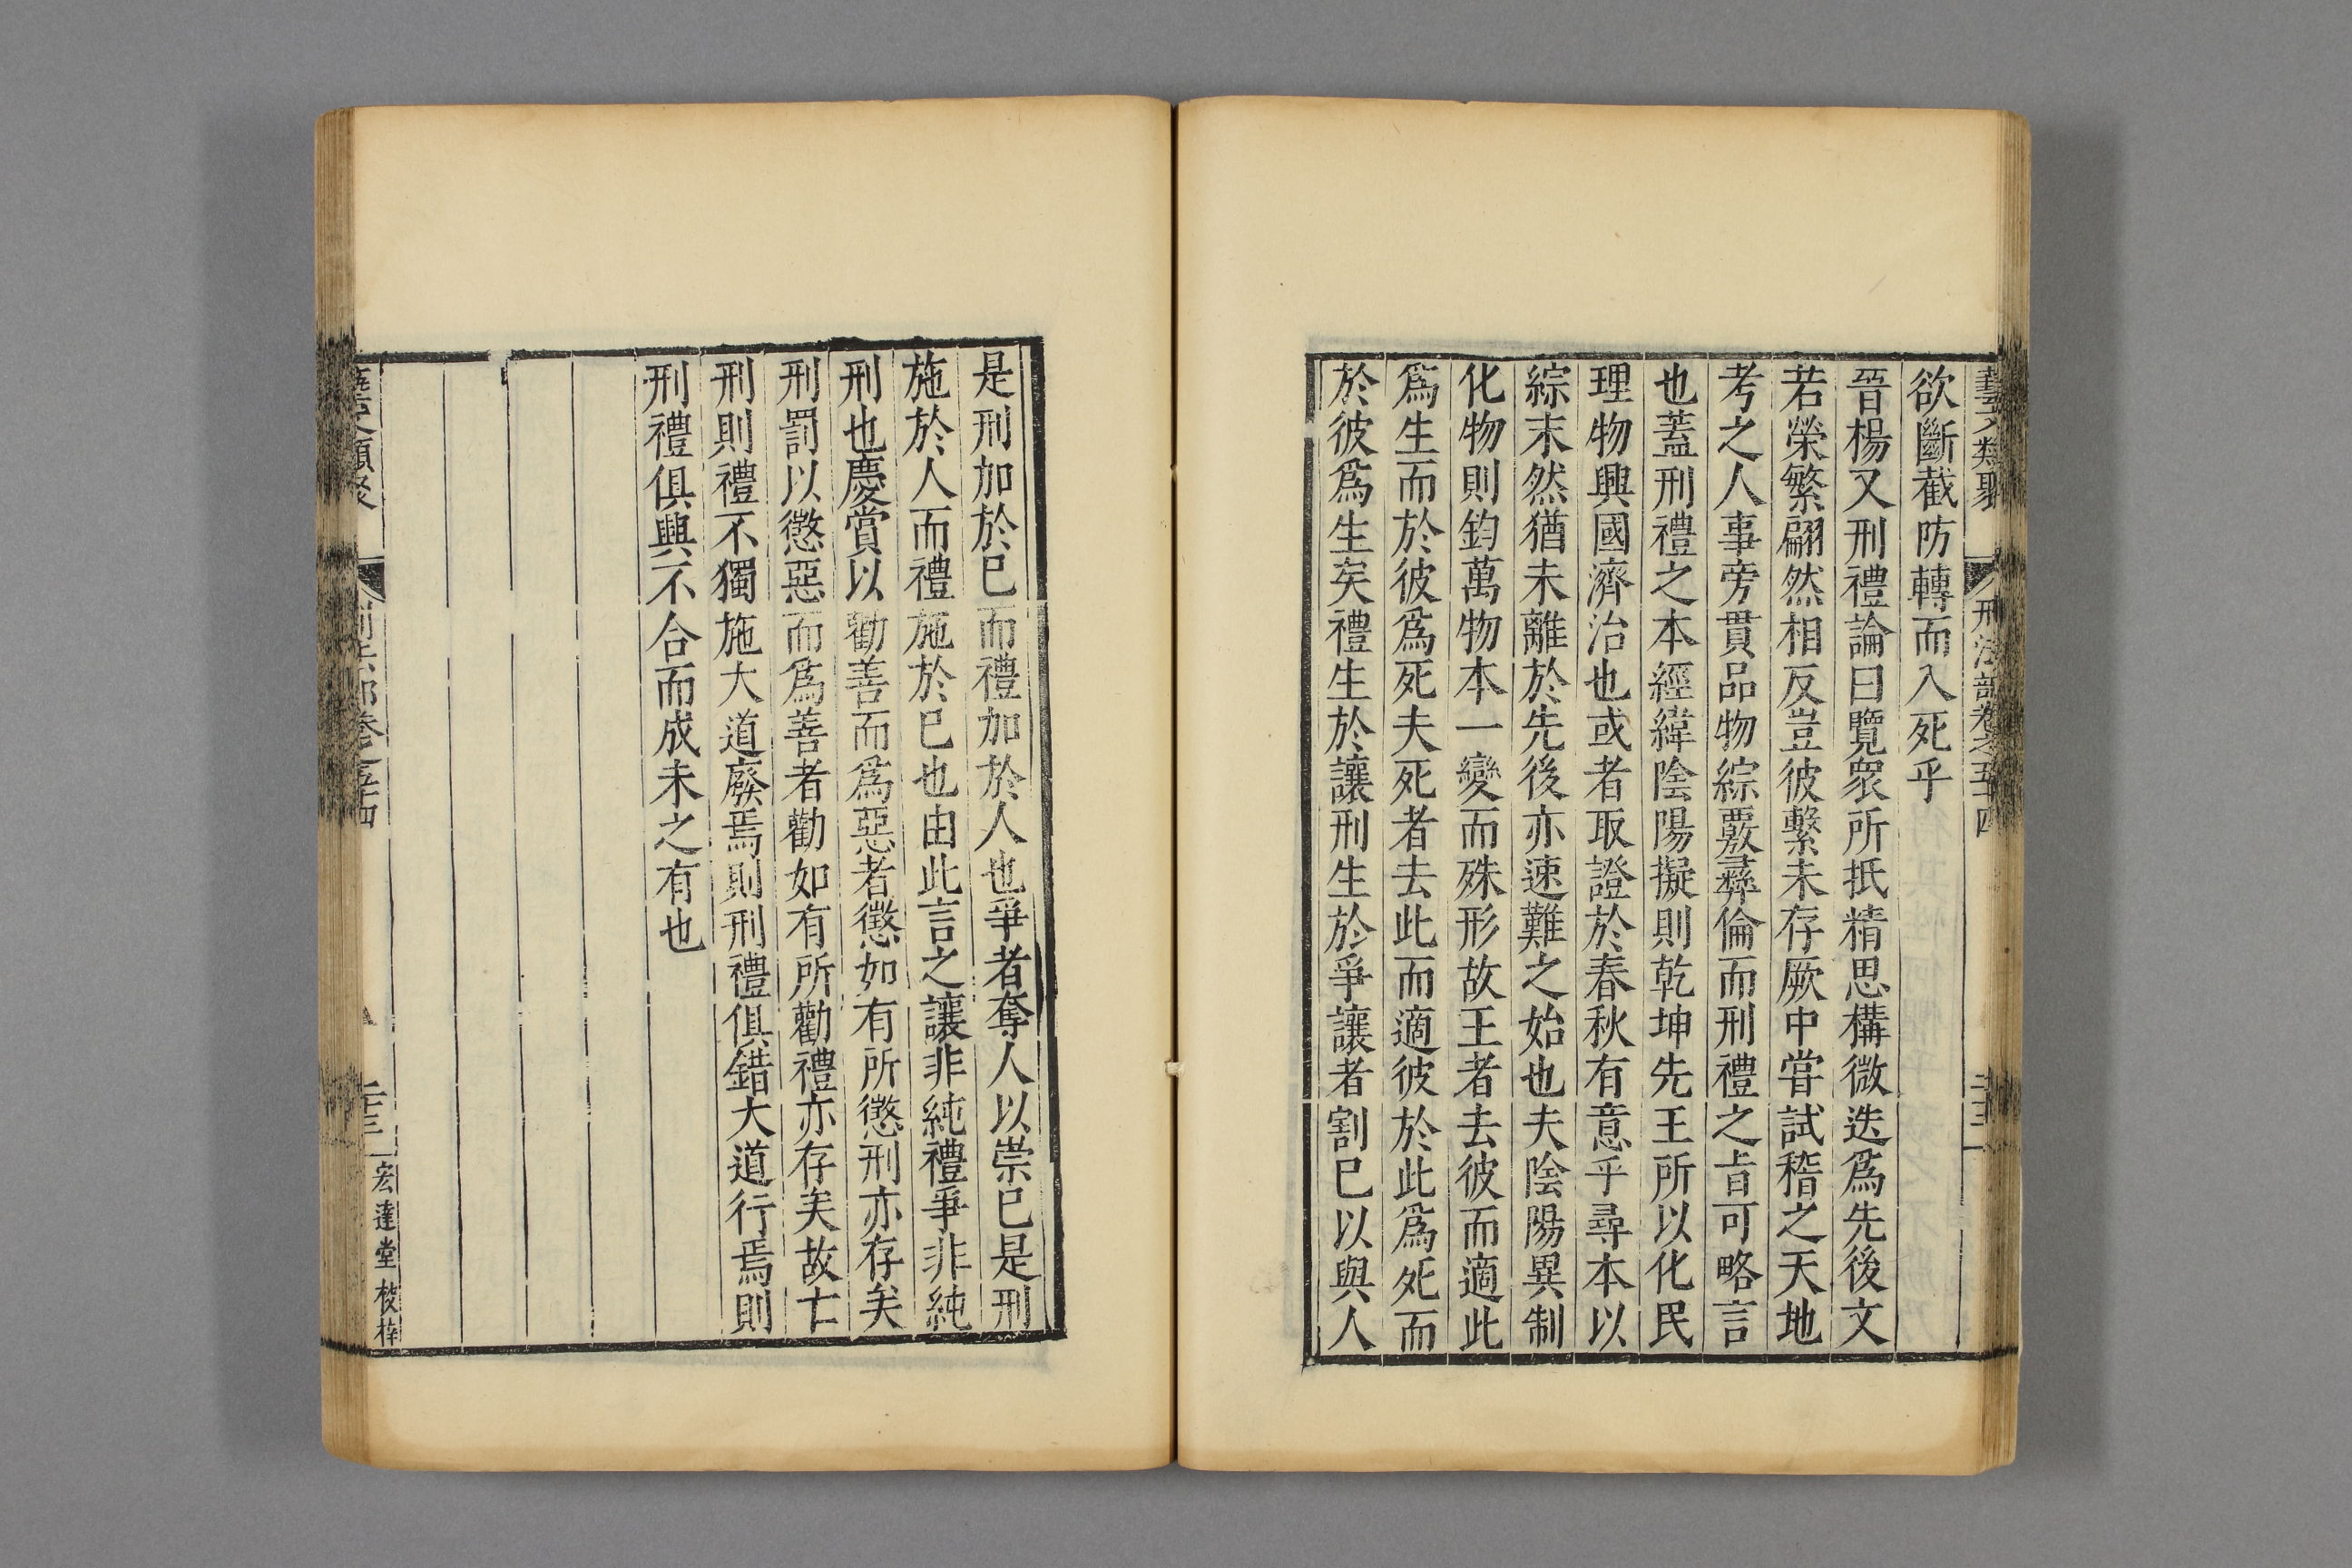 藝文類聚 刑法部卷之五十四
欲斷截防轉而入死乎
晉楊又刑禮論曰覽衆所抵精思構微迭爲先後文
若榮繁翩然相反豈彼繫未存厥中甞試稽之天地
考之人事旁貫品物綜覈彛倫而刑禮之㫖可略言
也蓋刑禮之本經緯陰陽擬則乾坤先王所以化民
理物興國濟治也或者取證於春秋有意乎尋本以
綜末然猶未離於先後亦速難之始也夫陰陽異制
化物則鈞萬物本一變而殊形故王者去彼而適此
爲生而於彼爲死夫死者去此而適彼於此爲死而
於彼爲生矣禮生於讓刑生於爭讓者割巳以與人
是刑加於巳而禮加於人也爭者奪人以崇巳是刑
施於人而禮施於巳也由此言之讓非純禮爭非純
刑也慶賞以勸善而爲惡者懲如有所懲刑亦存矣
刑罰以懲惡而爲善者勸如有所勸禮亦存矣故亡
刑則禮不獨施大道廢焉則刑禮俱錯大道行焉則
刑禮俱興不合而成未之有也
宏達堂校梓